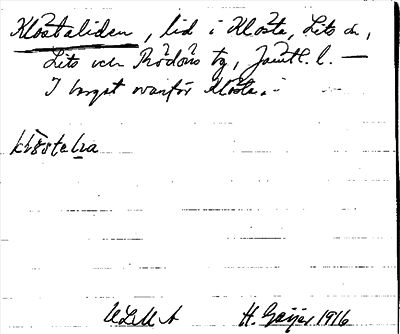 Klostaliden, lid i Klösta, Lits sn,
Lits och Rödöns tg, Jämtl. l. —
I berget ovanför Klösta.
ULMA H. Geijer 1916